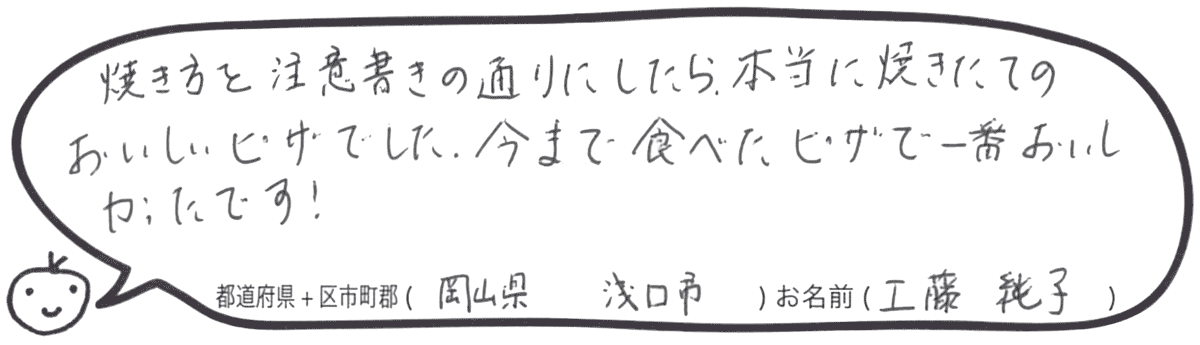 焼き方を注意書きの通りにしたら、本当に焼きたての
おいしいピザでした。今まで食べたピザで一番おいし
かったです!
都道府県+区市町郡( 岡山県 浅口市 )お名前(工藤 純子 )